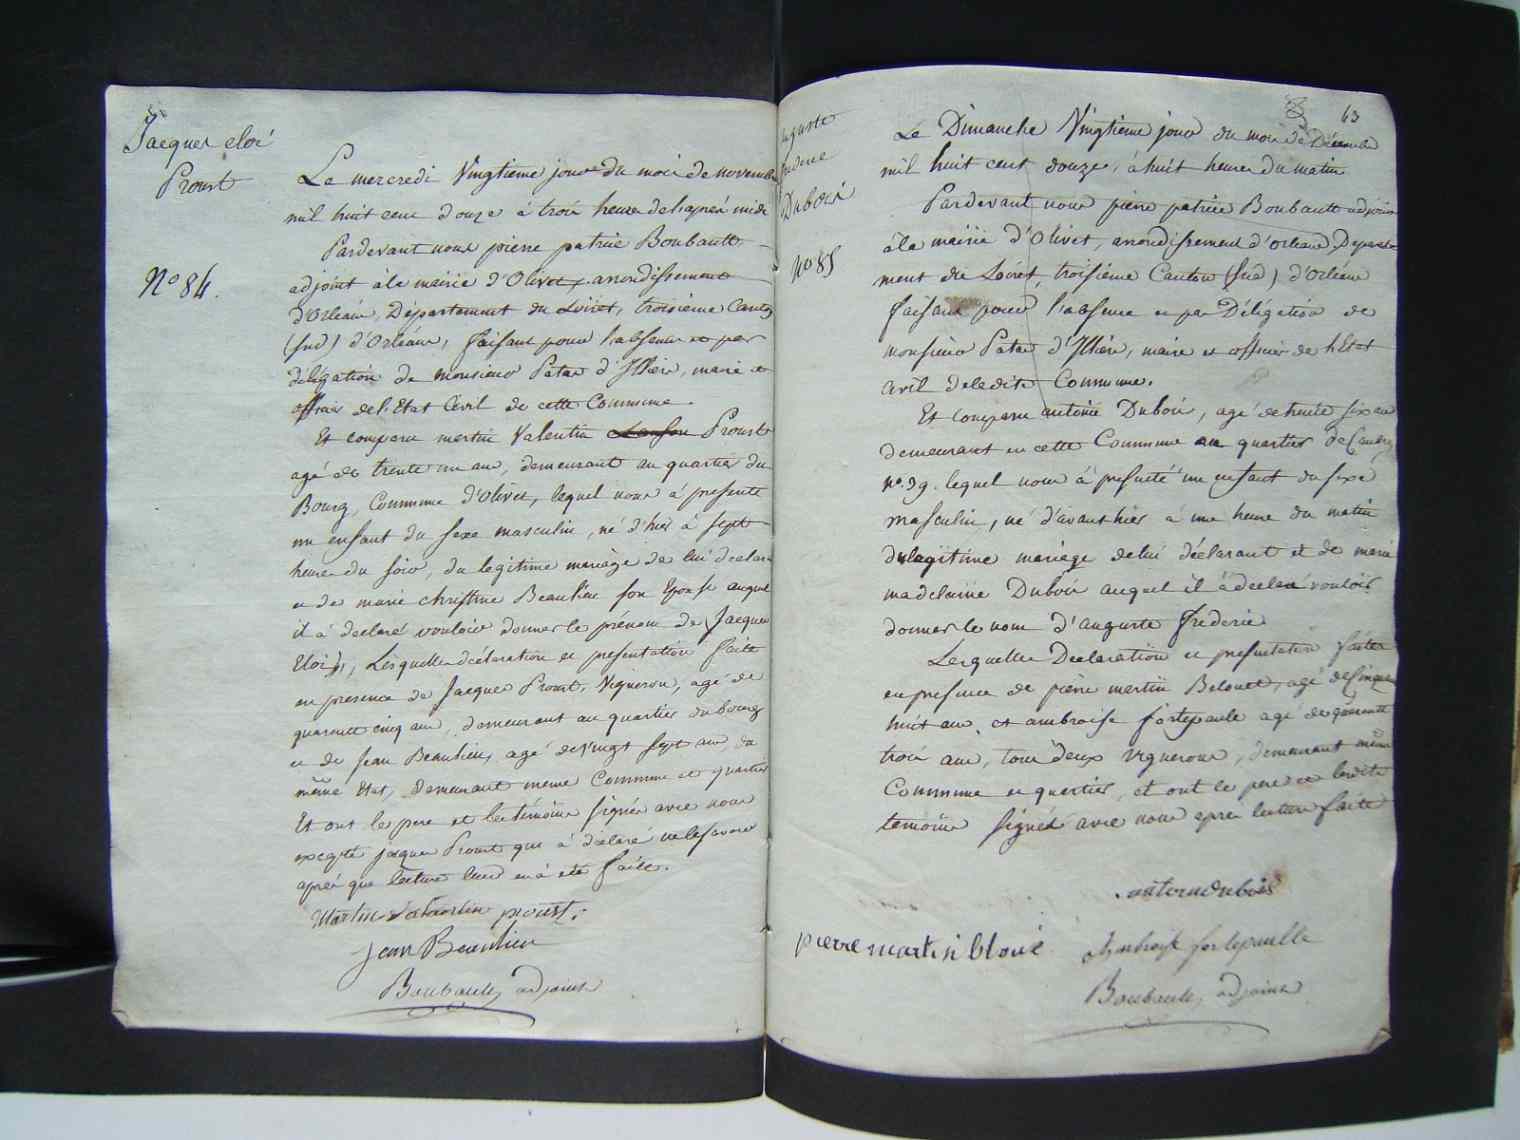 Jacques eloi
Proust
N° 84.
Le mercredi Vingtieme jour du moi de novembre
mil huit cent douze à troi heure delapreś midi
Pardevant nous pierre patrice Boubault
adjoint àla mairie d'Olivet, arrondissement
d'Orléans, Département du Loiret, troisième Canton
(Sud) d'Orléans, faisant pour l'absence et par
délégation de monsieur Patas d'Illiers, maire et
officier del'Etat Civil de cette Commune.
Et comparu martin Valentin Proust
agé de trente un ans, demeurant au quartier du
Bourg, Commune d'Olivet, lequel nous à presenté
un enfant du sexe masculin, né d'hier à sept
heures du soir, du legitime mariage de lui déclarant
et de marie christine Beaulieu son Epouse auquel
il à declaré vouloir donner le prénom de Jacques
Eloi, Lesquelles déclaration et présentation faite
en presence de Jacques Proust, Vigneron, agé de
quarante cinq ans, demeurant au quartier du bourg
et de Jean Beaulieu, agé de vingt sept ans, du
même Etat, demeurant meme Commune et quartier
Et ont le pere et les témoins signés avec nous
excepté jacques Proust qui à déclaré ne le savoir
après que lecture leur en à eté faite.
Martin Valantin proust.
Jean Beaulieu
Boubault, adjoint
63
auguste
frederic
Dubois
N° 85
Le Dimanche Vingtieme jour du moi de Décembre
mil huit cent douze, à huit heures du matin
Pardevant nous pierre patrice Boubault adjoint
àla mairie d'Olivet, arrondissement d'orleans, Departe-
ment du Loiret, troisième Canton (Sud) d'Orleans
faisant pour l'absence et par Délégation de
monsieur Patas d'Illiers, maire et officier de l'Etat
Civil deladite Commune.
Et comparu antoine Duboir, agé de trente six ans
demeurant en cette Commune au quartier de
n°. 39. lequel nous à presenté un enfant du sexe
masculin, né d'avant hier à une heure du matin
du legitime mariage de lui déclarant et de marie
madelaine Duboir auquel il à declaré vouloir
donner le nom d'auguste frederic
Lesquelles Declaration et presentation faites
en presence de pierre martin Belouet, agé de Cinquante
huit ans, et ambroise fortepaule agé de quarante
trois ans, tous deux vignerons, demeurant même
Commune et quartier, et ont le pere et lesdits
temoins signés avec nous apres lecture faite
antoinedubois
pierre martin bloué
Ambroise fortepaulle
Boubault, adjoint